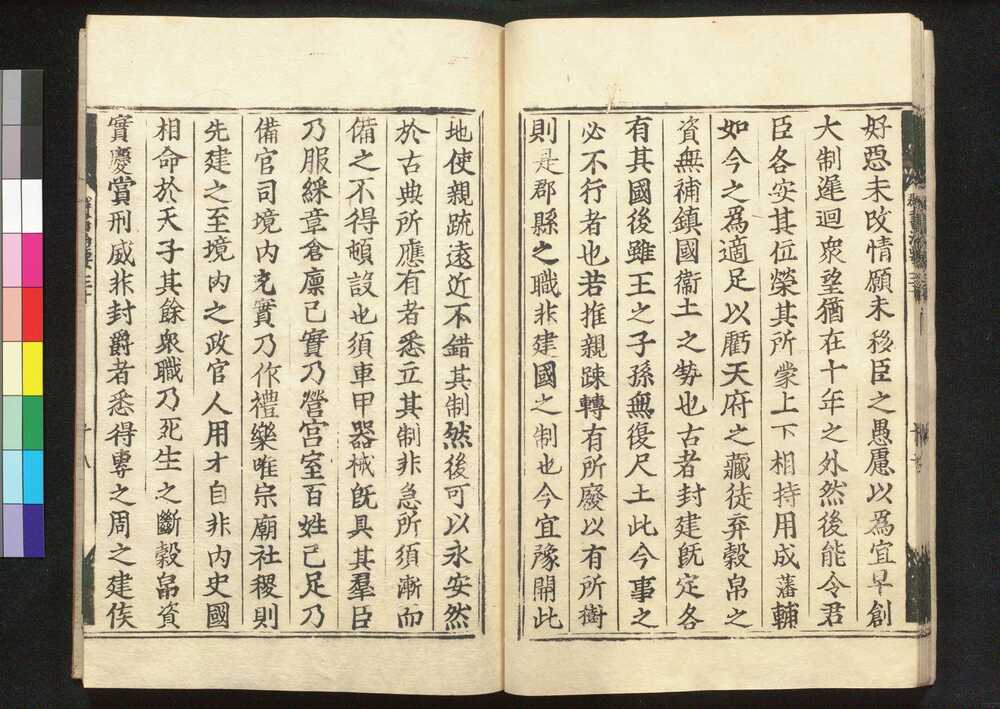 好惡未改情願未移臣之愚慮以爲宜早創
大制遲迴衆望猶在十年之外然後能令君
臣各安其位榮其所蒙上下相持用成藩輔
如今之爲適足以虧天府之藏徒弃穀帛之
資無補鎮國衞土之勢也古者封建既定各
有其國後雖王之子孫無復尺土此今事之
必不行者也若推親踈轉有所廢以有所樹
則是郡縣之職非建國之制也今宜豫開此
地使親䟽遠近不錯其制然後可以永安然
於古典所應有者悉立其制非急所須漸而
備之不得頓設也須車甲器械既具其羣臣
乃服綵章倉廩已實乃營宮室百姓已足乃
備官司境内充實乃作禮樂唯宗廟社稷則
先建之至境内之政官人用才自非内史國
相命於天子其餘衆職乃死生之斷穀帛資
實慶賞刑威非封爵者悉得專之周之建侯